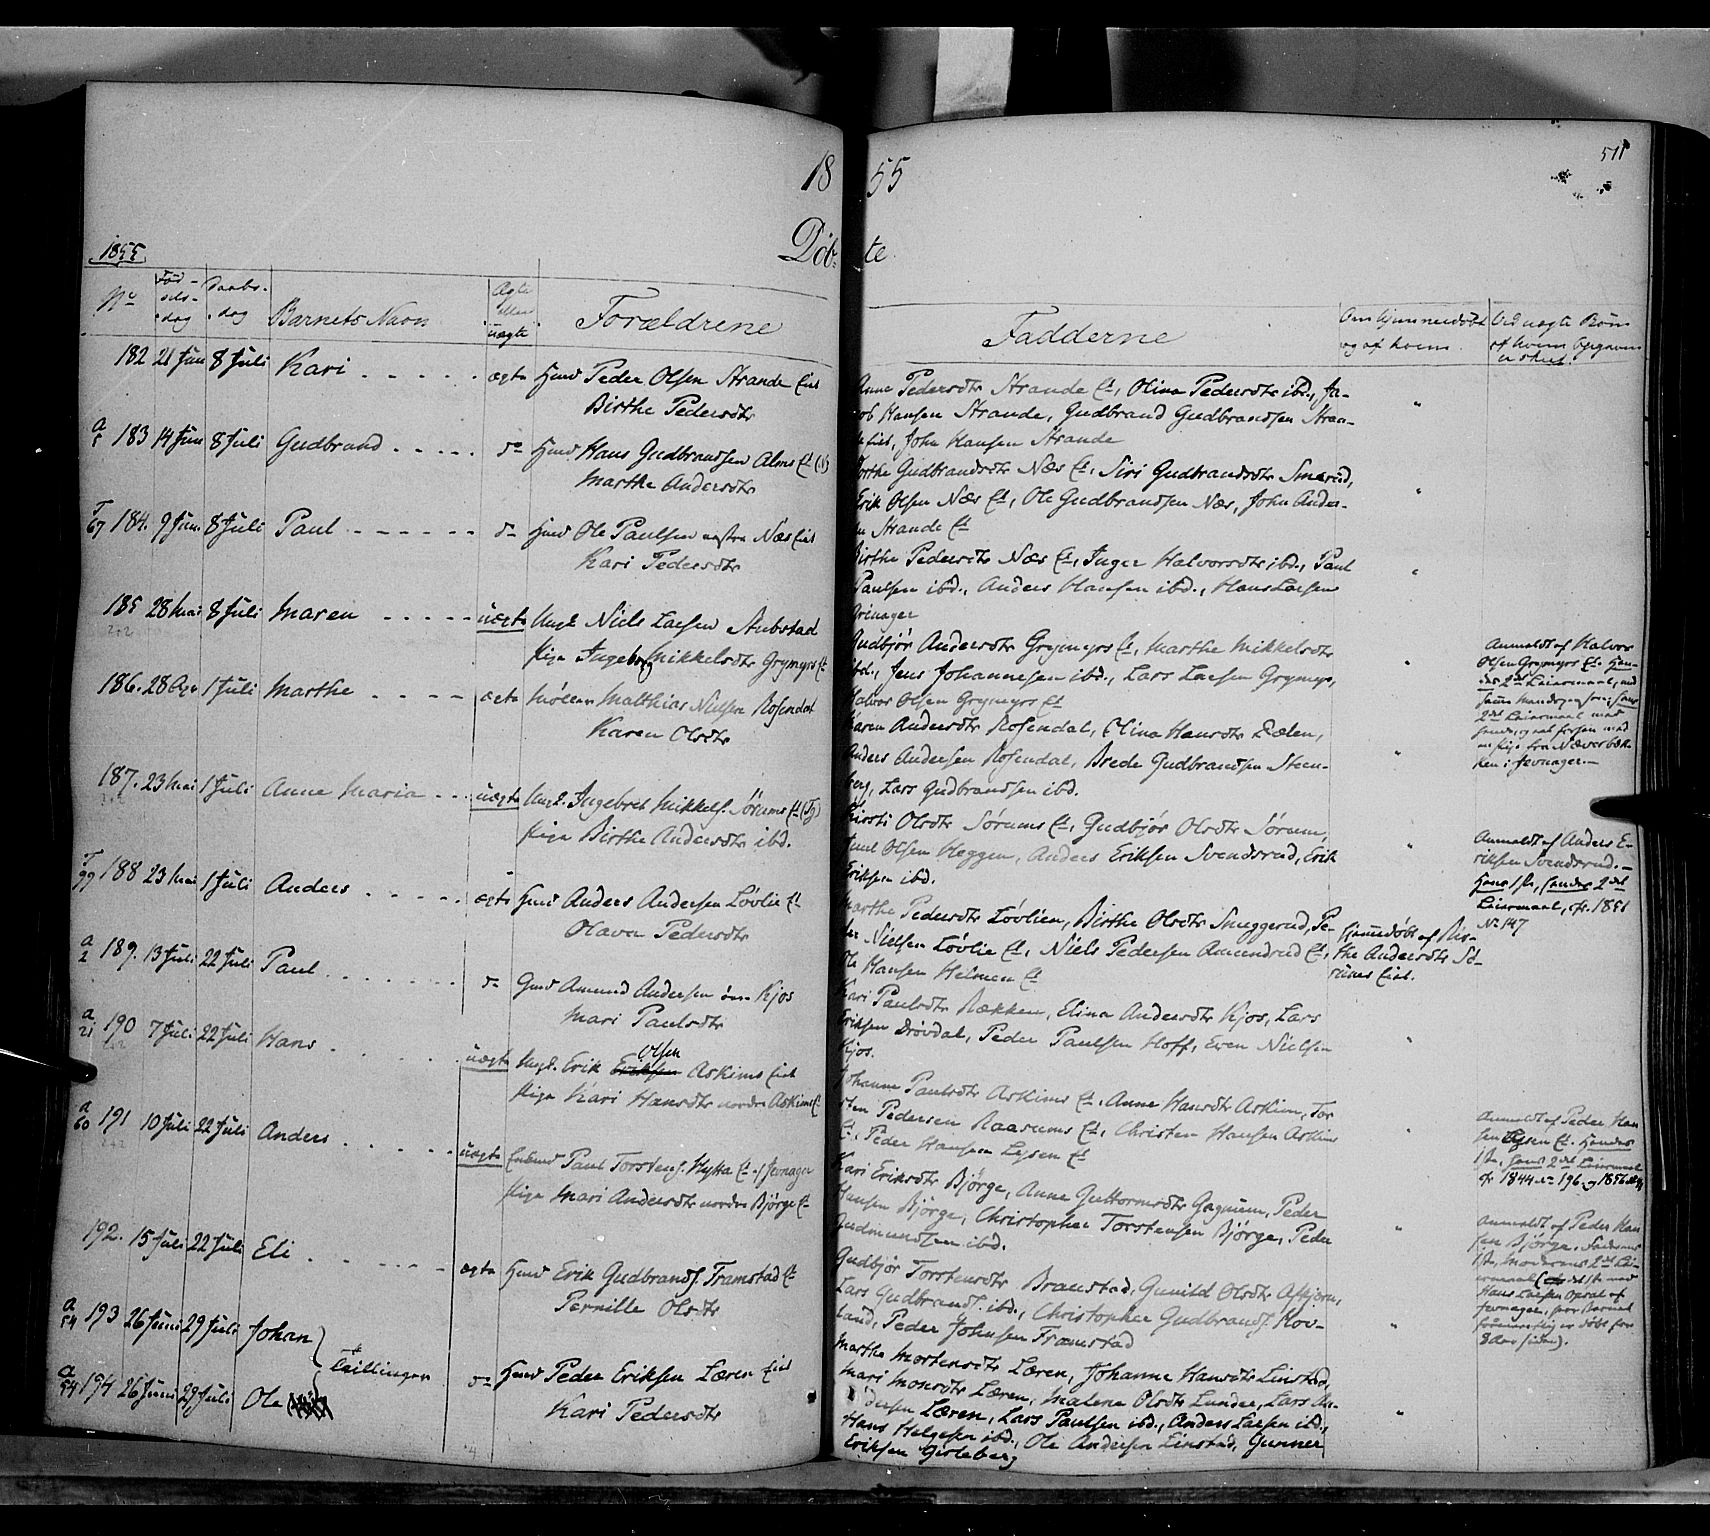 18 55
511
1855
Døb- te
No
Fød-
sels-
dag
Daabs-
dag
Barnets Navn
Ægte
eller
uægte
Forældrene
Fadderne
Om hjemmedøbt
og af hvem
Ved uægte Børn
af hvem Opgaven
er skeet.
182 21 Juni 8 Juli Kari ægte Huusmd Peder Olsen Strande Eiet
Birthe Pedersdtr
Anne Pedersdtr Strande Et, Olina Pedersdtr ibd., Ja-
cob Hansen Strande, Gudbrand Gudbrandsen Stran-
de Eiet, John Hansen Strande
183 14 Juni 8 Juli Gudbrand do Hans Gudbrandsen Alms Et
Marthe Andersdtr
Dorthe Gudbrandsdtr Næs Et, Siri Gudbrandsdtr Smerud,
Erik Olsen Næs Et, Ole Gudbrandsen Næs, John Ander-
sen Strande Et
184. 9 Juni 8 Juli Paul do Ole Paulsen Næs Eiet
Kari Pedersdtr
Birthe Pedersdtr Næs Et, Inger Halvorsdtr ibd., Paul
Paulsen ibd., Anders Hansen ibd., Hans Larsen
Grinager
185 28 Mai 8 Juli Maren uægte Ungk. Niels Larsen Aubstad
Pige Ingeborg Mikkelsdtr Grymyrs Et
Gudbjør Andersdtr Grymyrs Et, Marthe Mikkelsdtr
ibd., Jens Johannesen ibd., Lars Larsen Grymyr,
Halvor Olsen Grymyrs Et
Anmeldt af Halvor
Olsen Grymyrs Et. Hen-
des 2det Leiermaal, med
samme Mandsperson; hans
2det Leiermaal med
hende, og
en Pige fra Næverbæk-
ken i Jevnager.
186. 28 Apr 1 Juli Marthe ægte Møller Matthias Nielsen Rosendal
Karen Olsdtr
Karen Andersdtr Rosendal, Olina Hansdtr Dælen,
Anders Andersen Rosendal, Brede Gudbrandsen Steen-
berg, Lars Gudbrandsen ibd.
187. 23 Mai 1 Juli Anne Maria uægte Ungk. Ingebret Mikkels. Sørums Et
Pige Birthe Andersdtr ibd.
Kirsti Olsdtr Sørums Et, Gudbjør Olsdtr Sørum,
Olsen Heggen, Anders Eriksen Svendsrud, Erik
Eriksen ibd.
Anmeldt af Anders E-
riksen Svendsrud.
Hans 1ste, hendes 2det
Leiermaal, cfr. 1851
No 147
188 23 Mai 1 Juli Anders ægte Huusmd Anders Andersen Løvlie Et
Olava Pedersdtr
Marthe Pedersdtr Løvlien, Birthe Olsdtr Snuggerud, Pe-
der Nielsen Løvlie Et, Niels Pedersen Amundrud Et,
Ole Hansen Helmen Et
Hjemmedøbt af Bir-
the Andersdtr Sø-
rums Eiet.
189. 13 Juli 22 Juli Paul do Gmd Amund Andersen Kjos
Mari Paulsdtr
Kari Paulsdtr Rækken, Elina Andersdtr Kjos, Lars
Eriksen Drövdal, Peder Paulsen Hoff, Even Nielsen
Kjos.
190 7 Juli 22 Juli Hans uægte Ungk. Erik Olsen Askims Eiet
Pige Kari Hansdtr nordre Askims Et
Johanne Paulsdtr Askims Et, Anne Hansdtr Askim, Tor-
sten Pedersen Raasums Et, Christen Hansen Askims
Et, Peder Hansen Lysen Et
Anmeldt af Peder Han-
sen Lysen Et. Hendes
1ste, hans 2det Leiermaal
cfr 1844 No 196 og 1856
191 10 Juli 22 Juli Anders uægte Enkemd Paul Torstens. Hytta Et i Jevnager
Pige Mari Andersdtr nordre Bjørge Et
Kari Eriksdtr Bjørge, Anne Guttormsdtr Gagnum, Peder
Hansen Bjørge, Christopher Torstensen Bjørge, Peder
Gudmundsen ibd.
Anmeldt af Peder Han-
sen Bjørge. Faderens
1ste, Moderens 2det Lei-
ermaal (det 1ste med
Hans Larsen Opsal af
Jevnager, hvor Barnet
er døbt for
8 Aar siden).
192. 15 Juli 22 Juli Eli ægte Huusmd Erik Gudbrands. Framstad Et
Pernille Olsdtr
Gudbjør Torstensdtr Branstad, Gunild Olsdtr Askjum,
Lars Gudbrands. ibd., Christopher Gudbrands. Hov-
land, Peder Johnsen Framstad
193 26 Juni 29 Juli Johan
Tvillinger
194 26 Juni 29 Juli Ole
do Huusmd Peder Eriksen Læren Eiet
Kari Pedersdtr
Marthe Mortensdtr Læren, Johanne Hansdtr Linstad,
Mari Monsdtr Læren, Malene Olsdtr Lunder, Lars An-
dersen Læren, Lars Paulsen ibd., Anders Larsen ibd.,
Hans Helgesen ibd., Ole Andersen Linstad, Gunner
Eriksen Gisleberg